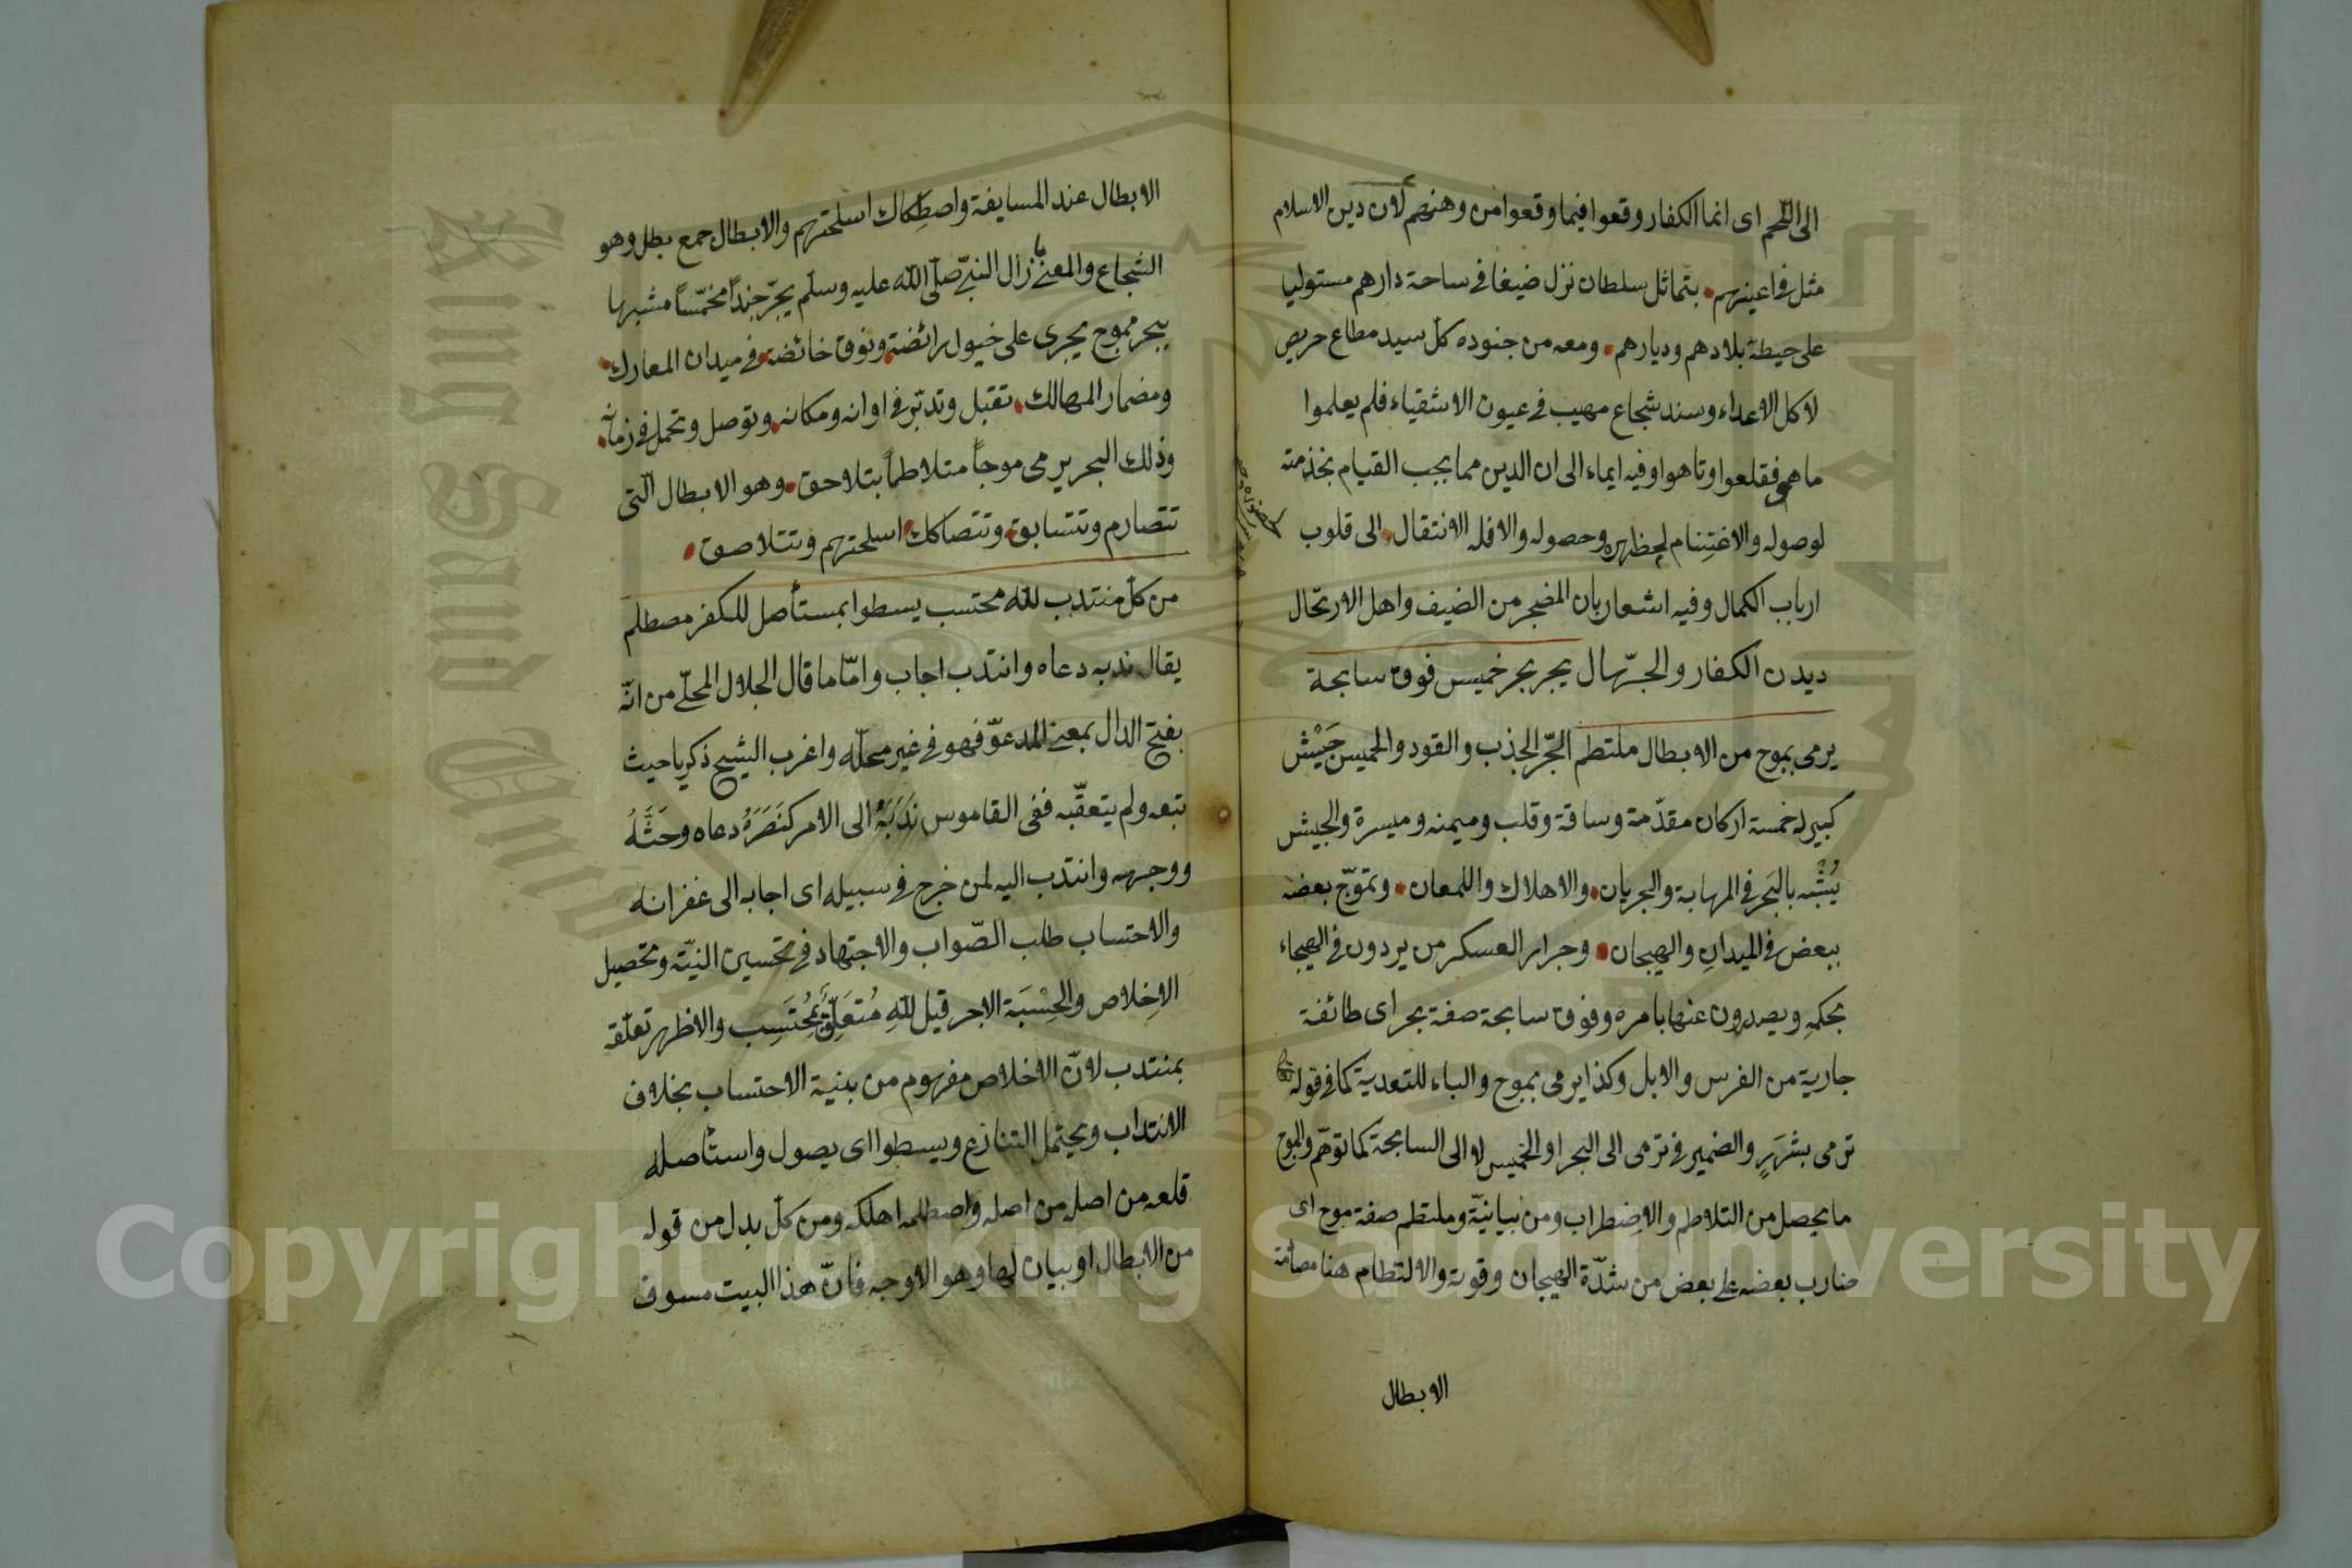 الى اللحم اى انما الكفار وقعوا فيما وقعوا من وهنهم لان دين الاسلام
مثل فى اعينهم بتماثل سلطان نزل ضيفا فى ساحة دارهم مستوليا
على حيطة بلادهم وديارهم ومعه من جنوده كل سيد مطاع حريص
لاكل الاعداء وسند شجاع مهيب فى عيون الاشقياء فلم يعلموا
ما هو فقلعوا وتاهوا وفيه ايماء الى ان الدين مما يجب القيام بخذمته
لوصوله والاغتنام وحصوله والا فله الانتقال الى قلوب
ارباب الكمال وفيه اشعار بان المضجر من الضيف واهل الارتحال
ديدن الكفار والجهال يجر بحر خميس فوق سابحة
يرمى بموج من الابطال ملتطم الجر الجذب والقود والخميس جَيْش
كبير له خمسة اركان مقدّمة وساقة وقلب وميمنه وميسرة والجيش
يُشْبّه بالبَحر فى المهابة والجريان والاهلاك واللمعان وتموّج بعضه
ببعض فى الميدانِ والهيجان وجرار العسكر من يردون فى الهيجاء
بحكمِه ويصدرون عنها بامره وفوق سابحة صفة بحر اى طائفة
جارية من الفرس والابل وكذا يرمى بموج والباء للتعدية كما فى قوله
ترمى بشَرَرٍ والضمير فى ترمى الى البحر او الخميس لا الى السابحة كما توهّم والموج
ما يحصل من التلاطم والاِضطراب ومن بيانيّة وملتطم صفة موج اى
ضارب بعضه على بعض من شدّة الهيجان وقوته والالتطام هنا
الابطال
الابطال عند المسايفة واصطِكاك اسلحتهم والابطال جمع بطل وهو
الشجاع والمعنى ما زال النبىّ صلّى اللّه عليه وسلّم يجّر جنداً مخمّساً مشبها
ببحر مموج يجرى على خيول رائضة ونوق خائضة فى ميدان المعارك
ومضمار المهالك تقبل وتدبّر فى اوانه ومكانه وتوصل وتحمل فى زمانه
وذلك البحر يرمى موجاً متلاطماً بتلاحق وهو الابطال الّتى
تتصارم وتتسابق وتتصاكك اسلحتهم وتتلاصق
من كلّ منتدب لله محتسب يسطوا بمستأصل للكفر مصطلم
يقال ندبه دعاه وانتدب اجاب وامّا ما قال الجلال المحلّى من انّه
بفتح الدال بمعنى المدعوّ فهو فى غير محلّه واغرب الشيخ ذكريا حيث
تبعه ولم يتعقّبه ففى القاموس نَدَبَهُ الى الامر كنَصَرَهُ دعاه وحَثَّهُ
ووجهه وانتدب اليه لمن خرج فى سبيله اى اجابه الى غفرانه
والاحتساب طلب الصّواب والاجتهاد فى تحسين النيّة وتحصيل
الاِخلاص والحِسْبَة الاجر قيل لله مُتعَلِّق بمُحتَسِب والاظهر تعلّقه
بمنتدب لانّ الاخلاص مفهوم من بنية الاحتساب بخلاف
الانتداب ويحتمل التنازع ويسطوا اى يصول واستأصله
قلعه من اصله من اصله واصطلمه اهلكه ومن كلّ بدل من قوله
من الابطال او بيان لها وهو الاوجه فانّ هذا البيت مسوق
Copyright © King Saud University